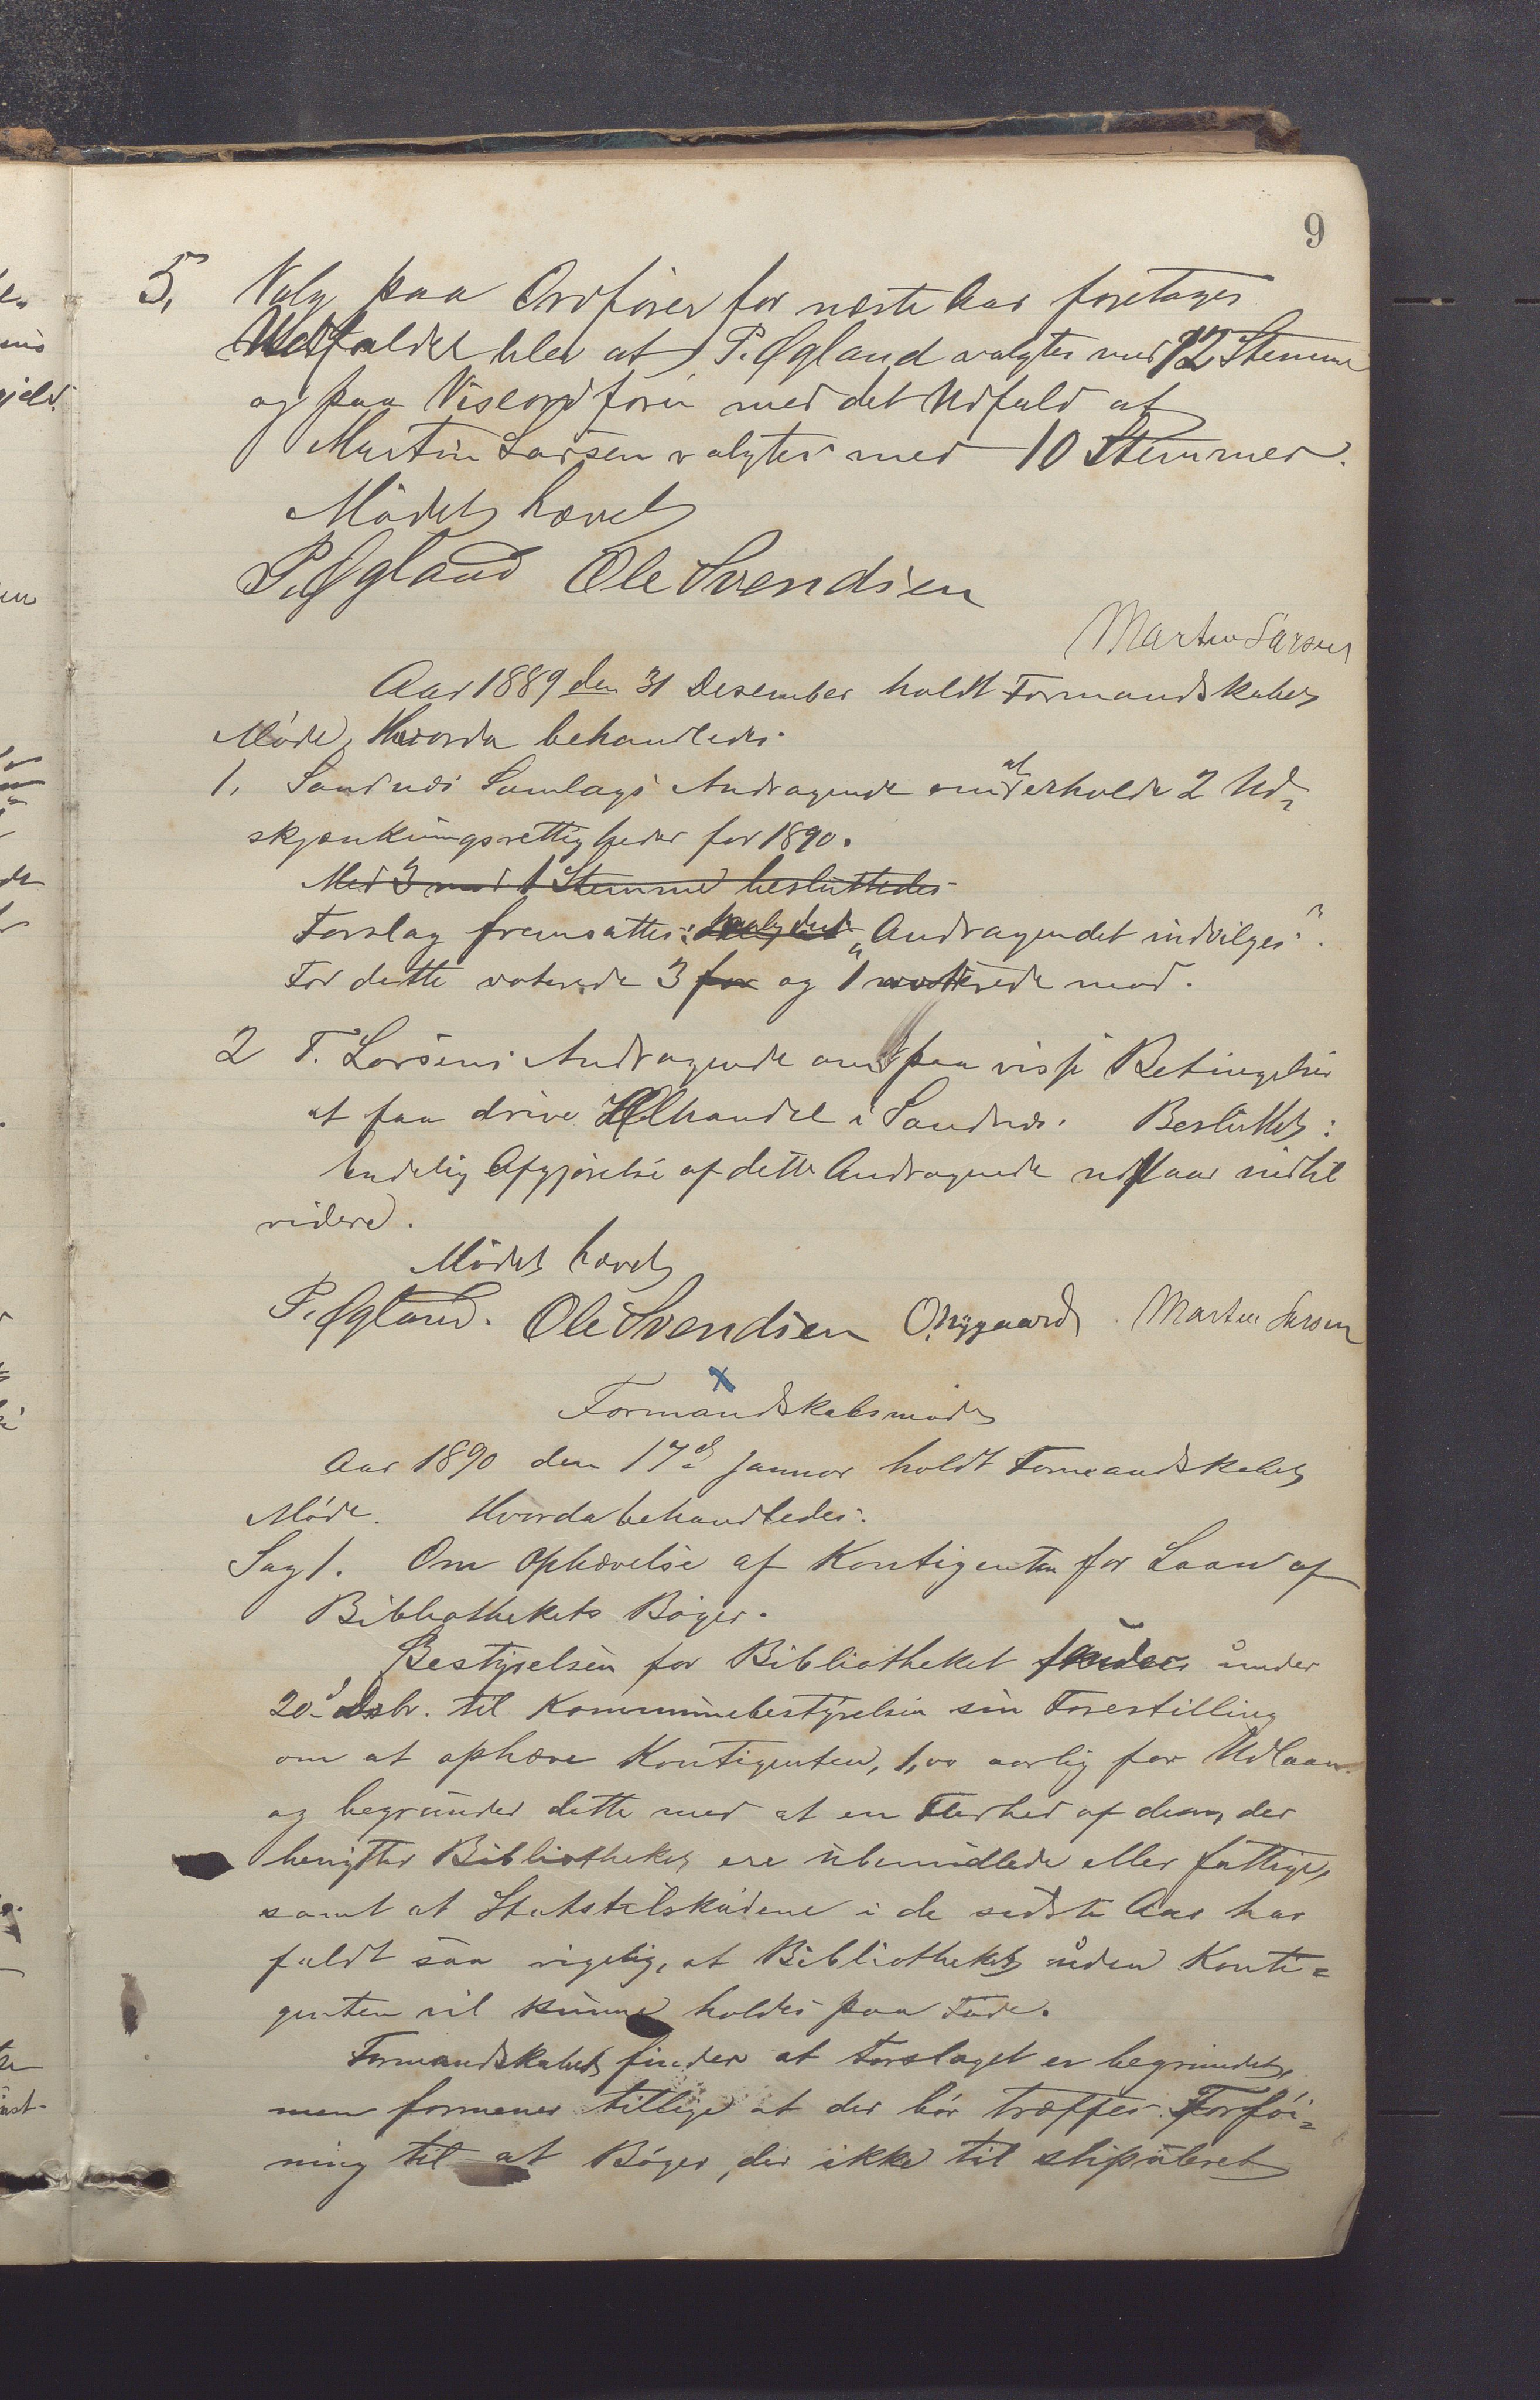 9
5, Valg paa Ordfører for næste Aar foretages
Udfaldet blev at P. Øgland valgtes med 12 Stemmer
og paa Viseordfører med det Udfald at
Martin Larsen valgtes med 10 Stemmer.
Mødet hævet
P. Øgland Ole Svendsen
Martin Larsen
Aar 1889 den 31 Desember holdt Formandskabet
Møde, Hvorda behandledes
1, Sandnæs Samlags Andragende om at erholde 2 Ud-
skjænkningsrettigheder for 1890.
Med 3 mod 1 Stemme besluttedes
Forslag fremsattes: "Andragendet indvilges".
For dette voterede 3 for og 1 voterede mod.
2 T. Larsens Andragende om paa visse Betingelser
at faa drive Ølhandel i Sandnæs. Besluttet:
Endelig Afgjørelse af dette Andragende udstaar indtil
videre.
Mødet hævet
P. Øgland. Ole Svendsen O. Nygaard. Martin Larsen
x
Formandskabsmøde
Aar 1890 den 17de Januar holdt Formandskabet
Møde. Hvorda behandledes:
Sag 1. Om Ophævelse af Kontigenten for Laan af
Bibliothekets Bøger.
Bestyrelsen for Bibliotheket sender under
20de Dsbr. til Kommunebestyrelsen sin Forestilling
om at ophæve Kontigenten, 1,00 aarlig for Udlaan
og begrunder dette med at en Flerhed af dem, der
benytter Bibliotheket ere ubemidlede eller fattige,
samt at Statstilskudene i de sidste Aar har
faldt saa rigelig, at Bibliotheket uden Konti-
genten vil kunne holdes paa Fode.
Formandskabet finder at Forslaget er begrundet,
men formener tillige at der bør træffes Forføi-
ning til at Bøger, der ikke til stipuleret